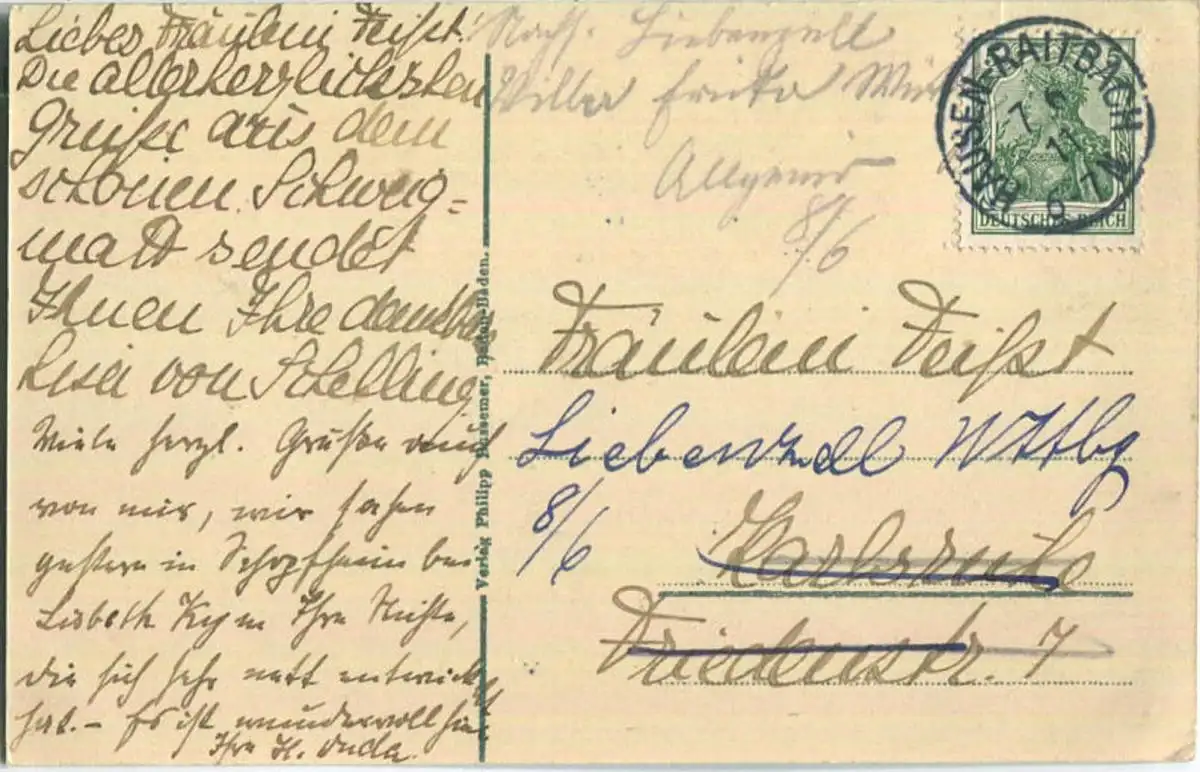 Liebes Fräulein Feißt!
Die allerherzlichsten
Grüße aus dem
schönen Schweig=
matt sendet
Ihnen Ihre dankbare
Lisa von Schelling.
Viele herzl. Grüße auch
von mir, wir sahen
gestern in Schopfheim bei
Lisbeth Kym Ihre Nichte,
die sich sehr nett entwickelt
hat. – Es ist wundervoll hier.
Ihre H.
Verlag Philipp Bussemer, Baden-Baden.
Nach Liebenzell
Villa
8/6
HAUSEN-RAITBACH
7 6
11
6-7 N
DEUTSCHES REICH
Fräulein Feißt
Liebenzell Wttbg
8/6
Karlsruhe
Friedenstr. 7